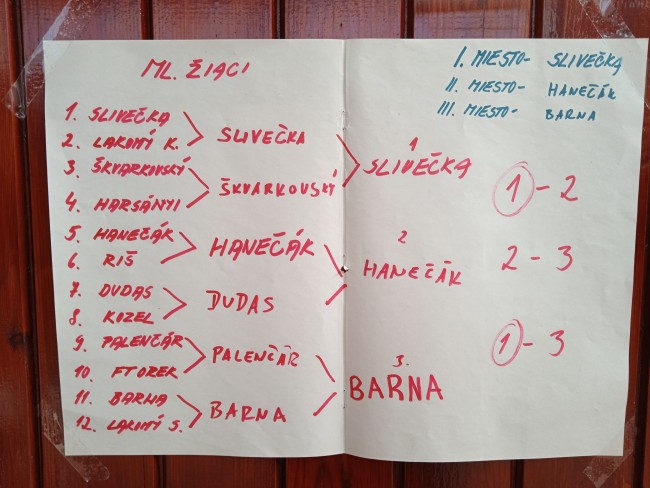 ML. ŽIACI
1. SLIVEČKA
2. LAKOMÝ K.
3. ŠKVARKOVSKÝ
4. HARSÁNYI
5. HANEČÁK
6. RIŠ
7. DUDAS
8. KOZEL
9. PALENČÁR
10. FTOREK
11. BARNA
12. LAKOMÝ S.
SLIVEČKA
ŠKVARKOVSKÝ
HANEČÁK
DUDAS
PALENČÁR
BARNA
1
SLIVEČKA
2
HANEČÁK
3.
BARNA
I. MIESTO- SLIVEČKA
II. MIESTO- HANEČÁK
III. MIESTO- BARNA
1 - 2
2 - 3
1 - 3